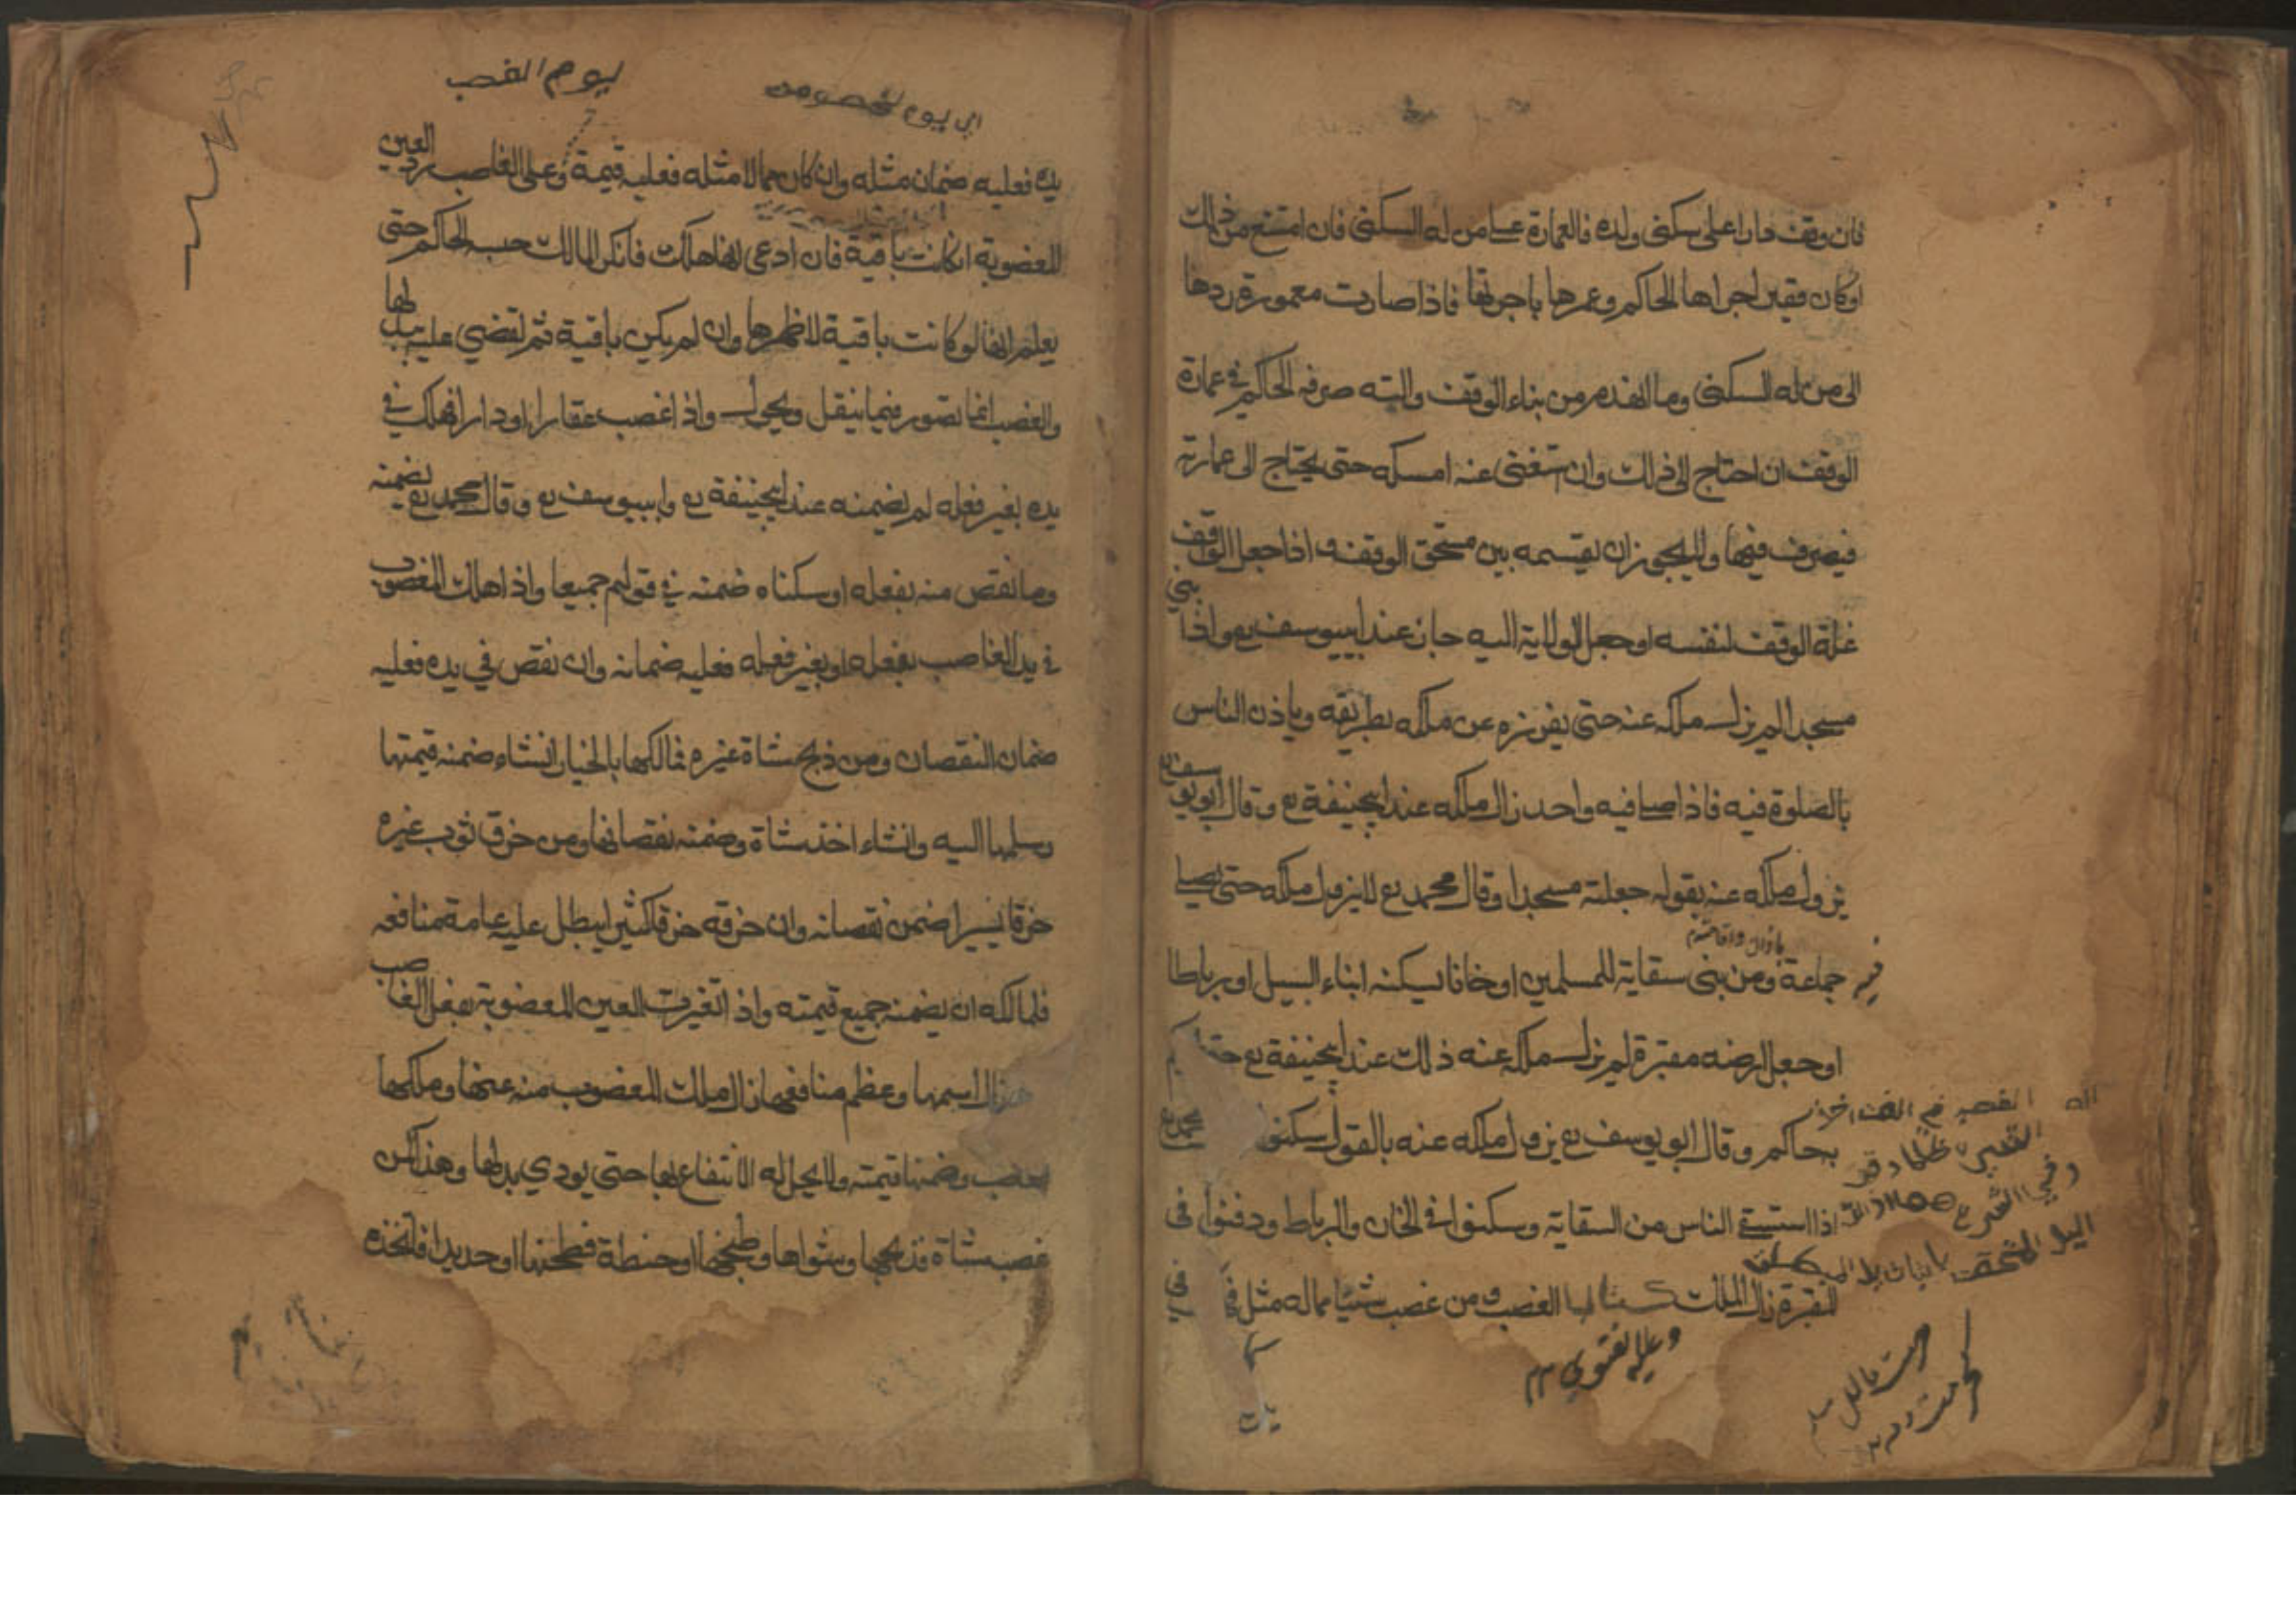 فان وقف دارا على سكنى ولده فالعمارة على من له السكنى فان امتنع من ذلك
اوكان فقيرا جراها الحاكم وعمرها باجرتها فاذا صارت معمورة ردها
الى من له السكنى وما انهدم من بناء الوقف والته صرفه الحاكم في عمارة
الوقف ان احتاج الى ذلك وان ستغنى عنه امسكه حتى يحتاج الى عمارته
فيصرف فيها ولا يجوز ان يقسمه بين مستحق الوقف واذا جعل الواقف
غلة الوقف لنفسه او جعل الولاية اليه جاز عند ابييوسف رع واذا بنى
مسجدا لم يزل ملكه عنه حتى يفرزه عن ملكه بطريقه وياذن الناس
بالصلوة فيه فاذا صلى فيه واحد زال ملكه عند ابيحنيفة رع وقال ابويوسف رع
يزول ملكه عنه بقوله جعلته مسجدا وقال محمد رع لا يزول ملكه حتى يصلى
باذان واقامته
فيه جماعة ومن بنى سقاية للمسلمين او خانا يسكنه ابناء السبيل او رباطا
او جعل ارضه مقبرة لم يزل ملكه عنه ذلك عند ابيحنيفة رع حتى
بحاكم وقال ابو يوسف رع يزول ملكه عنه بالقول سكنوا محمد رع
اذا استسقى الناس من السقاية وسكنوا في الخان والرباط ودفنوا فى
المقبرة زال الملك كتاب الغصب ومن غصب شيئا مماله مثل في
وعليه الفتوى
اى يوم الخصومن
يوم الغصب
يده فعليه ضمان مثله وان كان مما لا مثله فعليه قيمة وعلى الغاصب رد العين
المغضوبة انكانت باقية فان ادعى انها هلك فانكر المالك حبسه الحاكم حتى
يعلم انها لو كانت باقية لاظهرها وان لم يكن باقية ثم لقضي عليه ببدلها
والغصب انما تصور فيما ينقل ويحول واذا غصب عقارا او دارا فهلك في
يده بغير فعله لم يضمنه عند ابيحنيفة رع وابييوسف رع وقال محمد رع يضمنه
وما نقص منه بفعله او سكناه ضمنه في قولهم جميعا واذا هلك المغصوب
في يد الغاصب بفعله او بغير فعله فعليه ضمانه وان نقص في يده فعليه
ضمان النقصان ومن ذبح شاة غيره فمالكها بالخيار انشاء ضمنه قيمتها
وسلمها اليه وانشاء اخذ شاة وضمنه نقصانها ومن خرق ثوب غيره
خرقا يسيرا ضمن نقصانه وان خرقه خرقا كثيرا يبطل عليه عامة منافعه
فلمالكه ان يضمنه جميع قيمته واذا تغيرت العين المغضوبة بفعل الغاصب
زال اسمها وعظم منافعها زال ملك المغضوب منه عنها وملكها
وضمنها قيمته ولا يحل له الانتفاع بها حتى يودي بدلها وهذا كمن
غصب شاة فذبحها وشواها وطبخها او حنطة فطحنها او حديدا فاتخذه